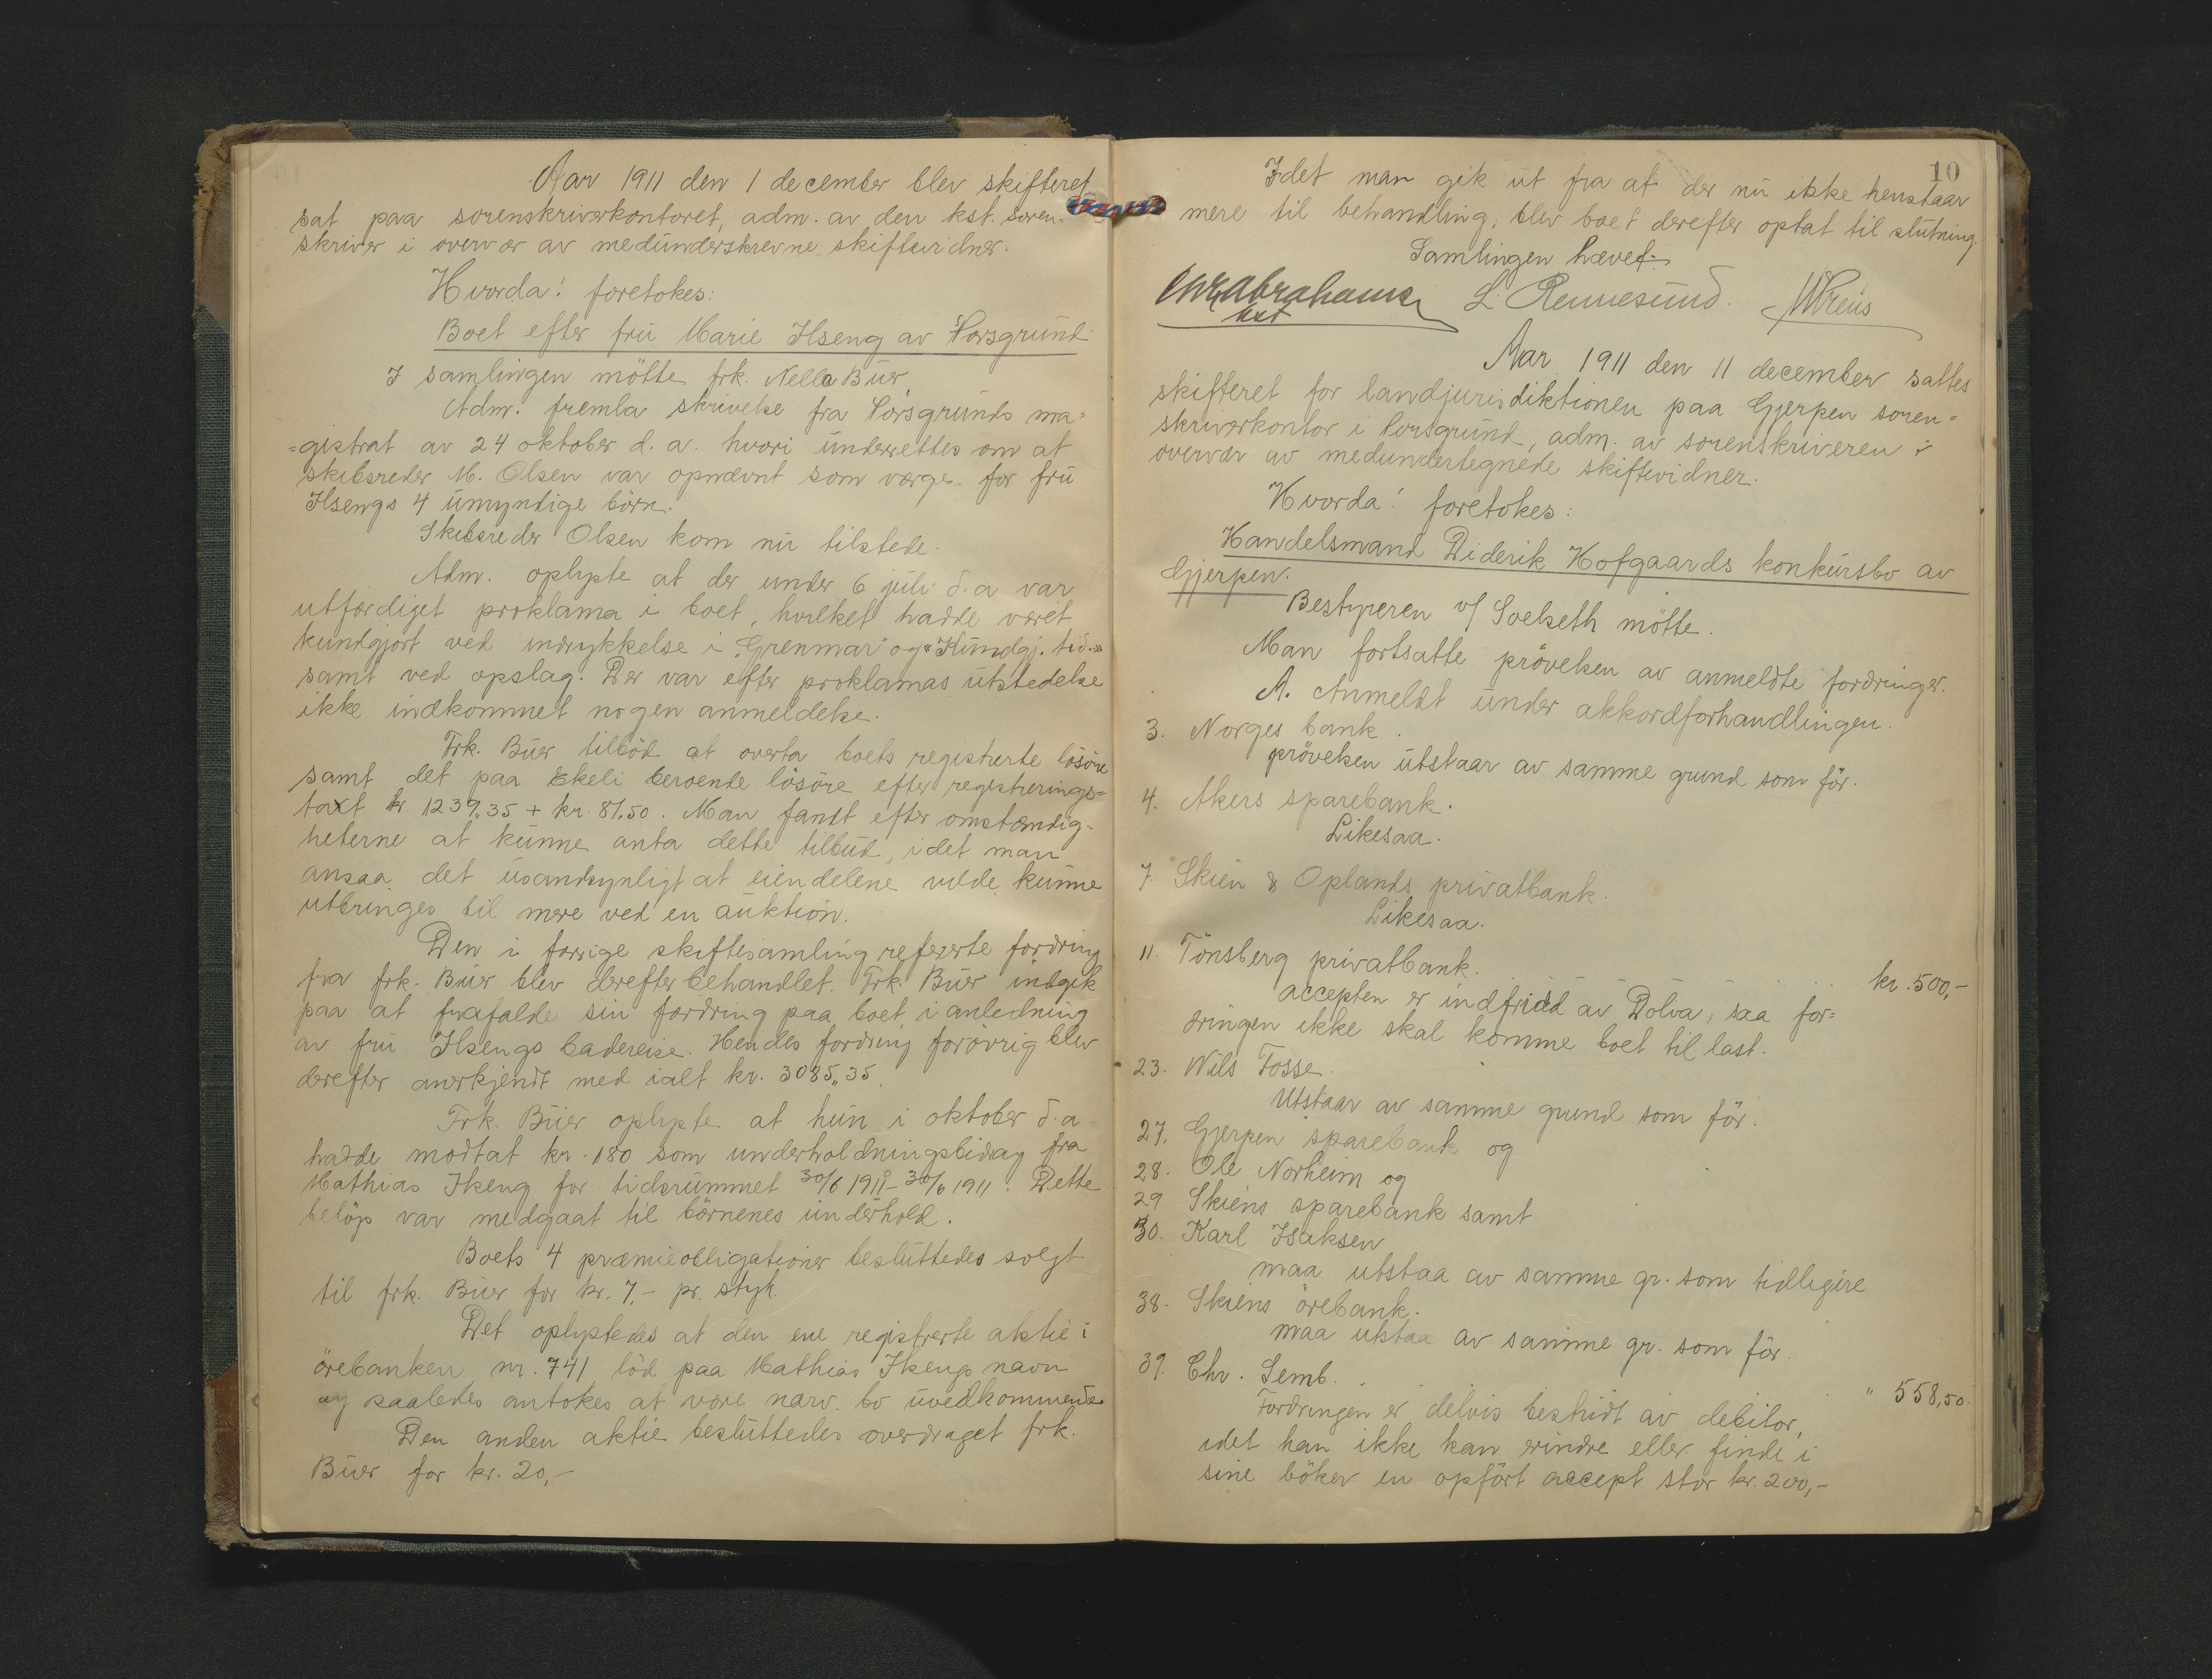 Aar 1911 den 1 december blev skifteret
sat paa sorenskriverkontoret, adm. av den kst. soren-
skriver i overvær av medunderskrevne skiftevidner.
Hvorda! foretokes:
Boet efter fru Marie Ilseng av Porsgrund.
I samlingen mötte frk. Nella Buer.
Adm. fremla skrivelse fra Porsgrunds ma=
=gistrat av 24 oktober d. a. hvori underrettes om at
skibsreder M. Olsen var opnævnt som værge for fru
Ilsengs 4 umyndige börn.
Skibsreder Olsen kom nu tilstede.
Adm. oplyste at der under 6 juli d. a var
utfærdiget proklama i boet, hvilket hadde været
kundgjort ved indrykkelse i "Grenmar" og "Kundgj. tid."
samt ved opslag. Der var efter proklamas utstedelse
ikke indkommet nogen anmeldelse.
Frk. Buer tilböd at overta boets registrerte lösöre
samt det paa Ekeli beroende lösöre efter registrerings=
taxt kr. 1239,35 + kr. 87,50. Man fandt efter omstændig-
heterne at kunne anta dette tilbud, idet man
ansaa det usandsynligt at eiendelene vilde kunne
utbringes til mere ved en auktion.
Den i forrige skiftesamling refererte fordring
fra frk. Buer blev derefter behandlet. Frk. Buer indgik
paa at frafalde sin fordring paa boet i anledning
av fru Ilsengs badereise. Hendes fordring forövrig blev
derefter anerkjendt med ialt kr. 3085,35.
Frk. Buer oplyste at hun i oktober d. a
hadde modtat kr. 180 som underholdningsbidrag fra
Mathias Ilseng for tidsrummet 30/6 1911 - 30/6 1911. Dette
belöp var medgaat til börnenes underhold.
Boets 4 præmieobligationer besluttedes solgt
til frk. Buer for kr. 7,- pr. styk.
Det oplystedes at den ene registrerte aktie i
örebanken nr. 741 löd paa Mathias Ilsengs navn
og saaledes antokes at være nærv. bo uvedkommende.
Den anden aktie besluttedes overdraget frk.
Buer for kr. 20,-
10
Idet man gik ut fra at der nu ikke henstaar
mere til behandling, blev boet derefter optat til slutning.
Samlingen hævet.
Chr. Abrahamsen L. Rennesund.
kst
Aar 1911 den 11 december sattes
skifteret for landjurisdiktionen paa Gjerpen soren=
skriverkontor i Porsgrund, adm. av sorenskriveren i
overvær av medundertegnede skiftevidner.
Hvorda! foretokes:
Handelsmand Diderik Hofgaards konkursbo av
Gjerpen.
Bestyreren v/ Solseth mötte.
Man fortsatte prövelsen av anmeldte fordringer.
A. Anmeldt under akkordforhandlingen.
3. Norges bank.
prövelsen utstaar av samme grund som för.
4. Akers sparebank.
Likesaa.
7. Skien & Oplands privatbank.
Likesaa.
11. Tönsberg privatbank. kr. 500,-
accepten er indfridd av Dolva, saa for=
dringen ikke skal komme boet til last.
23. Nils Fosse.
Utstaar av samme grund som för.
27. Gjerpen sparebank og
28. Ole Norheim og
29 Skiens sparebank samt
30. Karl Isaksen
maa utstaa av samme gr. som tidligere
38. Skiens örebank.
maa utstaa av samme gr. som för.
39. Chr. Semb. " 558,50.
Fordringen er delvis bestridt av debitor,
idet han ikke kan erindre eller finde i
sine böker en opfört accept stor kr. 200,-